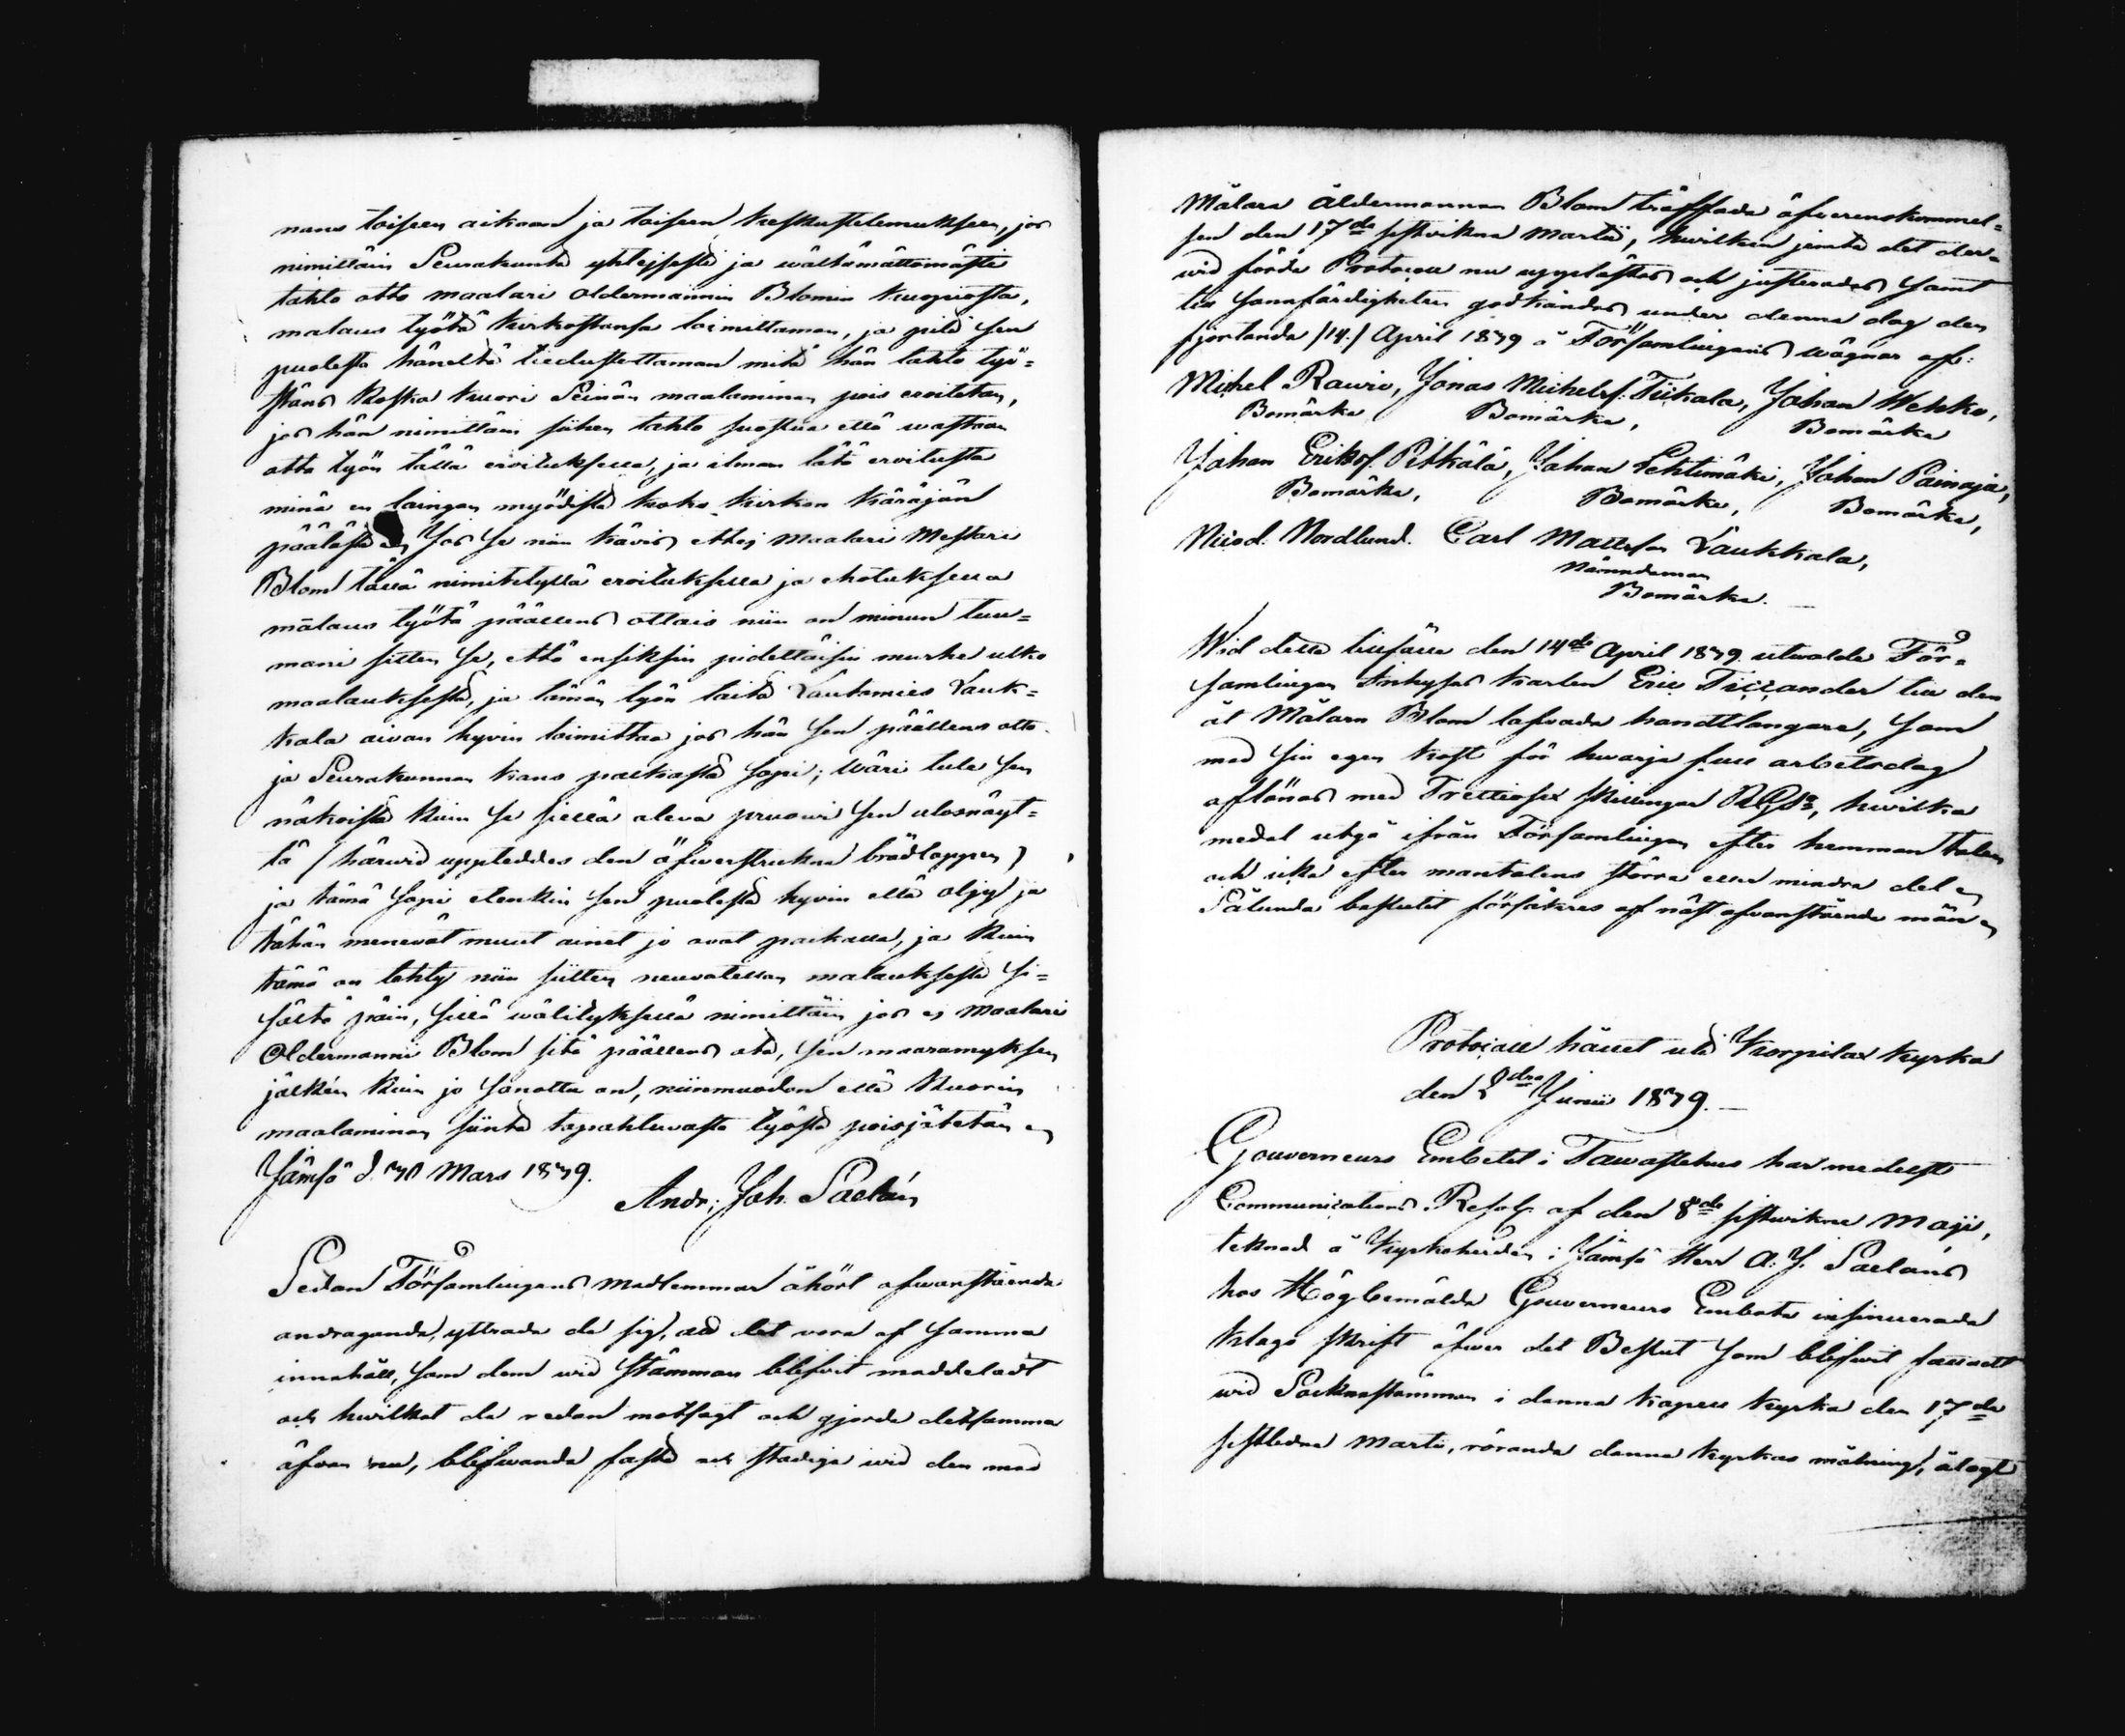 nans toiseen aikaan ja toiseen keskustelemukseen, jos
nimittäin Seurakunta yhteisestä ja wälttämättömästi
tahto otto maalari oldermannin Blomin Kuopiosta,
malaus työtä kirkostansa toimittaman, ja pitä sen
puolesta häneltä tiedustettaman mitä hän tahto työ=
stäns koska kuori Seinän maalaminen pois eroitetan,
jos hän nimittäin siihen tahto suostua että wastaan
otta työn tällä eroituksella, ja ilman tätä eroitusta
minä en laingan myödistä koko kirkon käräjän
päätöstä Jos se niin käwis ettej maalari Mestari
Blom tällä nimitetyllä eroituksella ja ehdotuksella
målaus työtä päällens ottais niin on minun tuu=
mani sitten se, että ensiksin pidettäisin murhe ulko
maalauksesta, ja tämän työn taitä Lautamies Lauk=
kala aivan hyvin toimittaa jos hän sen päällens otto
ja Seurakunnan kans palkasta sopi; Wäri tule sen
näköistä kuin se siellä oleva pruowi sen ulosnäyt=
tä (härwid uppteddes den öfwerstrukna brädlappen)
ja tämä sopi etenkin sen puolesta hyvin että oljy ja
tähän menevät muut ainet jo ovat paikalla, ja kuin
tämä on tehty niin sitten neuvotellan malauksesta si=
sältä päin, sillä wälityksellä nimittäin jos ej Maalari
Oldermanni Blom sitä päällens ota, sen maaramyksen
jälkén kuin jo sanottu on, niinmuodon että Kuorin
maalaminen siintä tapahtuvasta työstä poisjätetän
Jämsä d. 30 Mars 1839.
Andr: Joh. Saelán
Sedan Församlingens Medlemmar åhört ofwanstående
andragande, yttrade de sig, att det vore af samma
innehåll, som dem wid Stämman blifvit meddeladt
och hwilket de redan motsagt och gjorde detsamma
äfven nu, blifwande fasta och stadiga wid den med
Målare Åldermannen Blom träffade öfverenskommel=
sen den 17de sistvikne Martii, hwilken jemte det der=
wid förda Protocoll nu upplästes och justerades samt
till sannfärdigheten godkändes under denna dag den
fjortonde /14./ April 1839 å Församlingens wägnar af:
Michel Rawio, Jonas Michelss. Tiikala, Johan Wehko,
Bomärke Bomärke, Bomärke
Johan Erikss. Pitkälä, Johan Lehtimäki, Johan Painaja,
Bomärke, Bomärke, Bomärke,
Nicod. Nordlund. Carl Mattsson Laukkala,
Nämndeman
Bomärke.
Wid detta tillfälle den 14de April 1839 utvalde För=
samlingen Inhyses karlen Eric Tillander till den
åt Målarn Blom lofvade handtlangare, som
med sin egen kost för hwarje full arbetsdag
aflönas med Trettiosex skillingar RGds, hwilka
medel utgå ifrån Församlingen efter hemman talen
och icke efter mantalens större eller mindre del
Sålunda beslutit försäkres af näst ofvanstående män
Protocoll hållet uti Korpilax kyrka
den 2dra Junii 1839.
Gouverneurs Embetet i Tawastehus har medelst
Communications Resol: af den 8de sistwikne Maji,
teknad å Kyrkoherden i Jämsä Herr A. J. Saeláns
hos Högbemälde Gouverneurs Embete insinuerade
klago skrift öfwer det Beslut som blifwit fattadt
wid Socknestämman i denna kapell kyrka den 17de
sistledne Martii, rörande denna kyrkas målning, ålagt